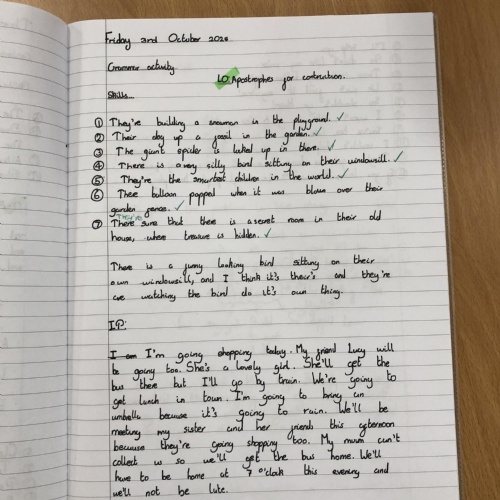 Friday 3rd October 2025
Grammar activity
LO: Apostrophes for contraction.
Skills...
① They're building a snowman in the playground. ✓
② Their dog up a fossil in the garden. ✓
③ The giant spider is locked up in there. ✓
④ There is a very silly bird sitting on their windowsill. ✓
⑤ They're the smartest children in the world. ✓
⑥ Thee balloon popped when it was blown over their
garden fence. ✓
They're
⑦ There sure that there is a secret room in their old
house, where treasure is hidden. ✓
There is a funny looking bird sitting on their
own windowsill, and I think it's their's and they're
are watching the bird do it's own thing.
I.P:
I am I'm going shopping today. My friend Lucy will
be going too. She's a lovely girl. She'll get the
bus there but I'll go by train. We're going to
get lunch in town. I'm going to bring an
umbrella because it's going to rain. We'll be
meeting my sister and her friends this afternoon
because they're going shopping too. My mum can't
collect us so we'll get the bus home. We'll
have to be home at 7 o'clock this evening and
we'll not be late.